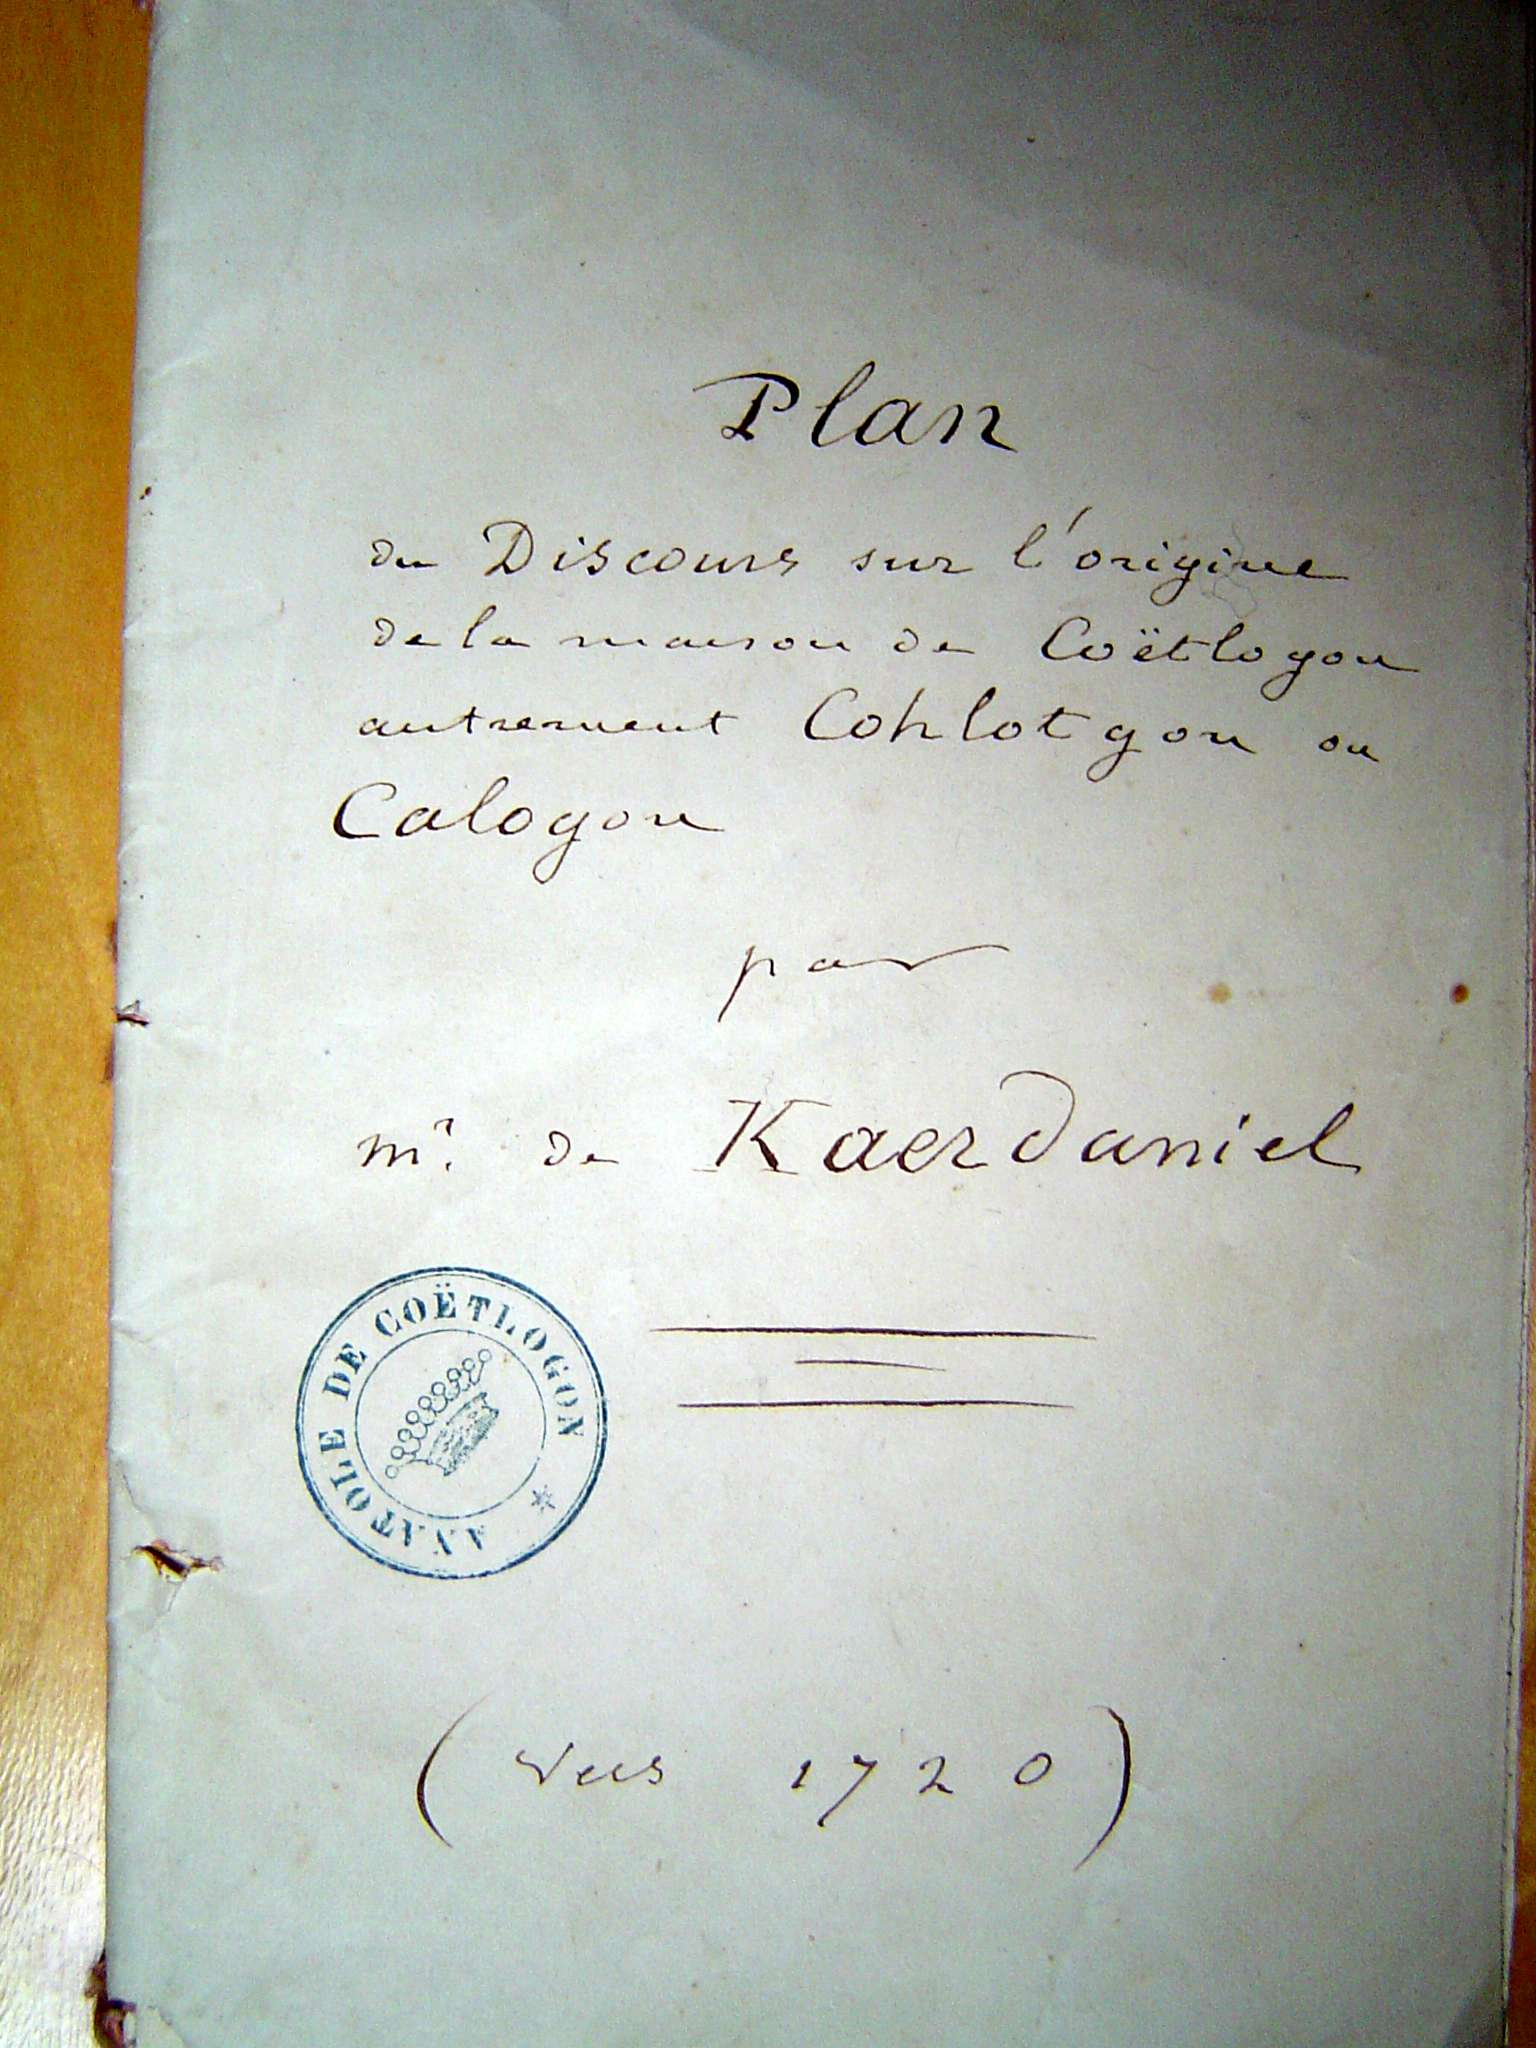 Plan
du Discours sur l'origine
de la maison de Coëtlogon
autrement Cohlotgon ou
Calogon
par
mr. de Kaerdaniel
ANATOLE DE COËTLOGON
(vers 1720)